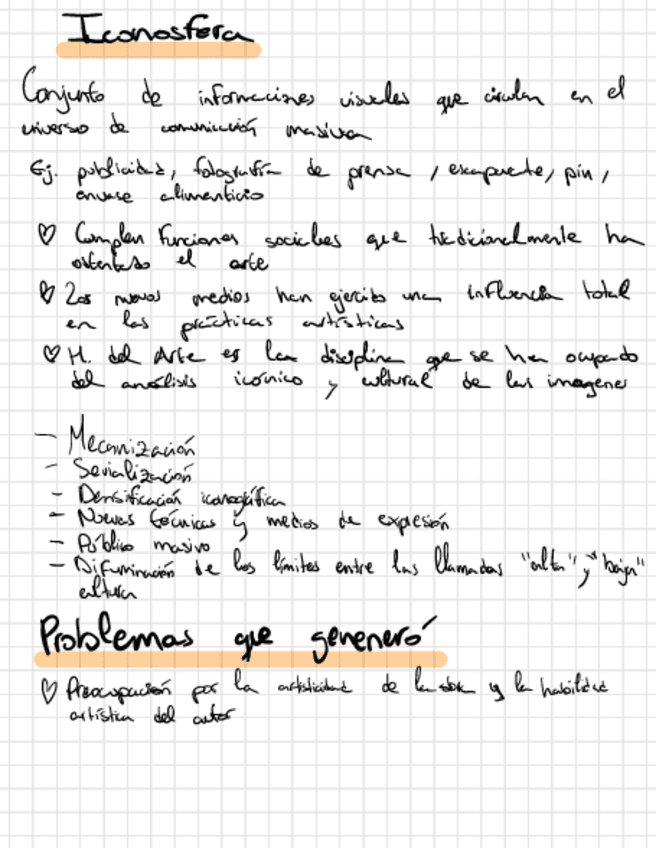 Iconosfera
Conjunto de informaciones visuales que circulan en el
universo de comunicación masiva
Ej. publicidad, fotografía de prensa, escaparate, pin,
envase alimenticio
♡ Cumplen funciones sociales que tradicionalmente ha
ostentado el arte
♡ Los nuevos medios han ejercido una influencia total
en las prácticas artísticas
♡ H. del Arte es la disciplina que se ha ocupado
del análisis icónico y cultural de las imagenes
- Mecanización
- Serialización
- Densificación iconográfica
- Nuevas técnicas y medios de expresión
- Público masivo
- Difuminación de los límites entre las llamadas "alta" y "baja"
cultura
Problemas que geneneró
♡ Preocupación por la artisticidad de la obra y la habilidad
artística del autor